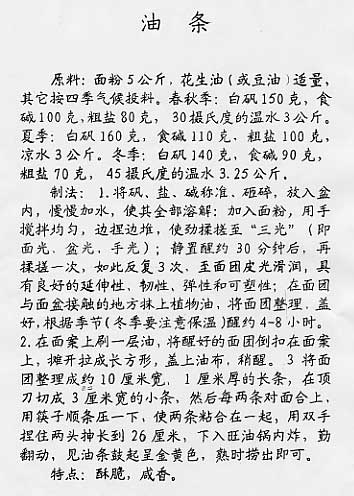 油 条
原料：面粉5公斤，花生油（或豆油）适量，
其它按四季气候投料。春秋季：白矾150克，食
碱100克，粗盐80克， 30摄氏度的温水3公斤。
夏季：白矾160克，食碱110克．粗盐100克，
凉水3公斤。冬季：白矾140克，食碱90克，
粗盐70克， 45摄氏度的温水3.25公斤。
制法： 1.将矾、盐、碱称准、砸碎，放入盆
内，慢慢加水，使其全部溶解；加入面粉，用手
搅拌均匀，边捏边堆，使劲揉搓至“三光”（即
面光、盆光、手光）；静置醒约30分钟后，再
揉搓一次，如此反复3次，至面团皮光滑润，具
有良好的延伸性、韧性、弹性和可塑性；在面团
与面盆接触的地方抹上植物油，将面团整理．盖
好，根据季节（冬季要注意保温）醒约4-8小时。
2.在面案上刷一层油，将醒好的面团倒扣在面案
上，摊开拉成长方形，盖上油布，稍醒。 3 将面
团整理成约10厘米宽， 1厘米厚的长条，在顶
刀切成3厘米宽的小条，然后每两条对面合上，
用筷子顺条压一下，使两条粘合在一起，用双手
捏住两头抻长到26厘米，下入旺油锅内炸，勤
翻动，见油条鼓起呈金黄色，熟时捞出即可。
特点：酥脆，咸香。